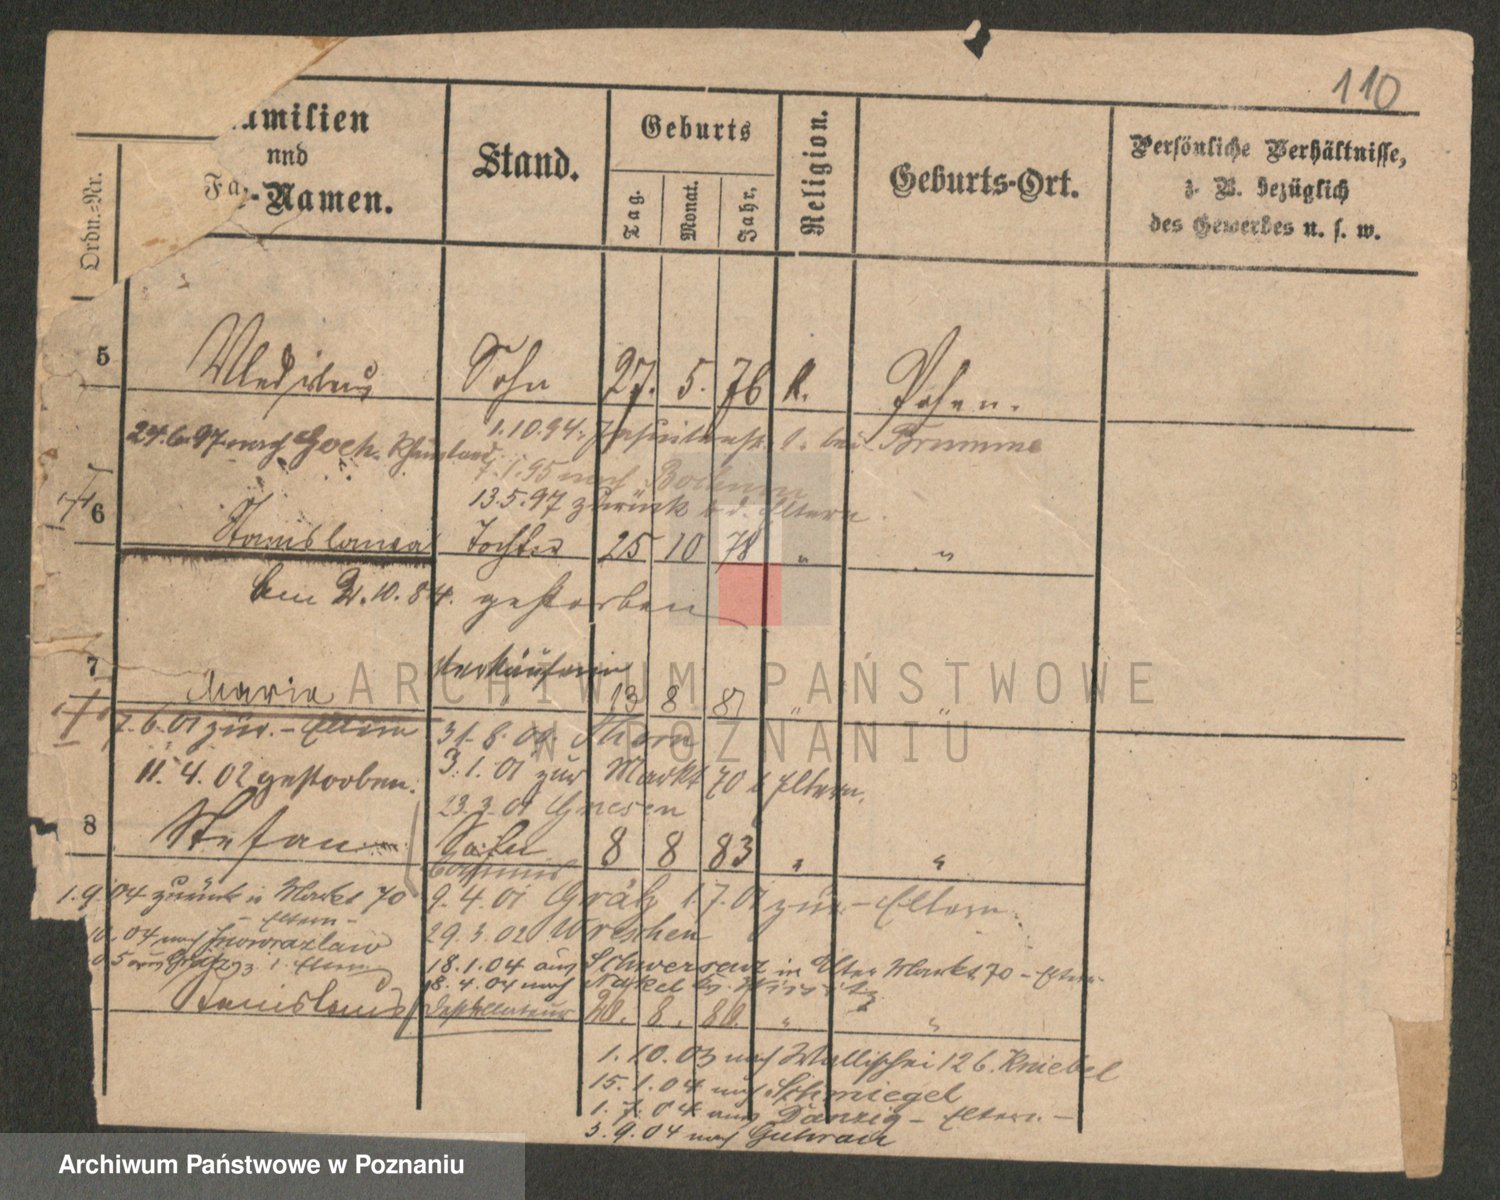 110
Familien
und
Namen.
Ordn.-Nr.
Stand.
Geburts
Tag.
Monat.
Jahr.
Religion.
Geburts-Ort.
Persönliche Verhältnisse,
z. B. bezüglich
des Gewerbes u. s. w.
5 Wladislaus Sohn 27. 5. 76 k. Posen.
1.10.94. Jesuitenstr. bei Brumme
24.6.97 nach Goch. Rheinland
7.1.95 nach Bochum
13.5.97 zurück z. d. Eltern
6 Stanislawa Tochter 25 10 78 " "
Am 2.10.84. gestorben
7 Maria Verkäuferin 13 8 81 " "
7.6.01 zur. - Eltern 31.8.00 Thorn
11.4.02 gestorben. 3.1.01 zur Markt 70 b Eltern.
23.3.01 Gnesen
8 Stefan Sohn 8 8 83 " "
Commis
1.9.04 zurück n Markt 70 9.4.01 Grätz 1.7.01 zur - Eltern.
- Eltern -
04 nach Inowrazlaw 29.3.02 Wreschen
05 aus Grätz z. Eltern 18.1.04 aus Schwersenz in Alter Markt 70 - Eltern.
8.4.04 nach Nakel Kr. Wirsitz
Stanislaus Destillateur 20. 8. 80. " "
1.10.03 nach Wallischei 12 b. Kniebel
15.1.04 nach Schmiegel
1.7.04 aus Danzig - Eltern. -
3.9.04 nach Guhrau
ARCHIWUM PAŃSTWOWE
W POZNANIU
Archiwum Państwowe w Poznaniu